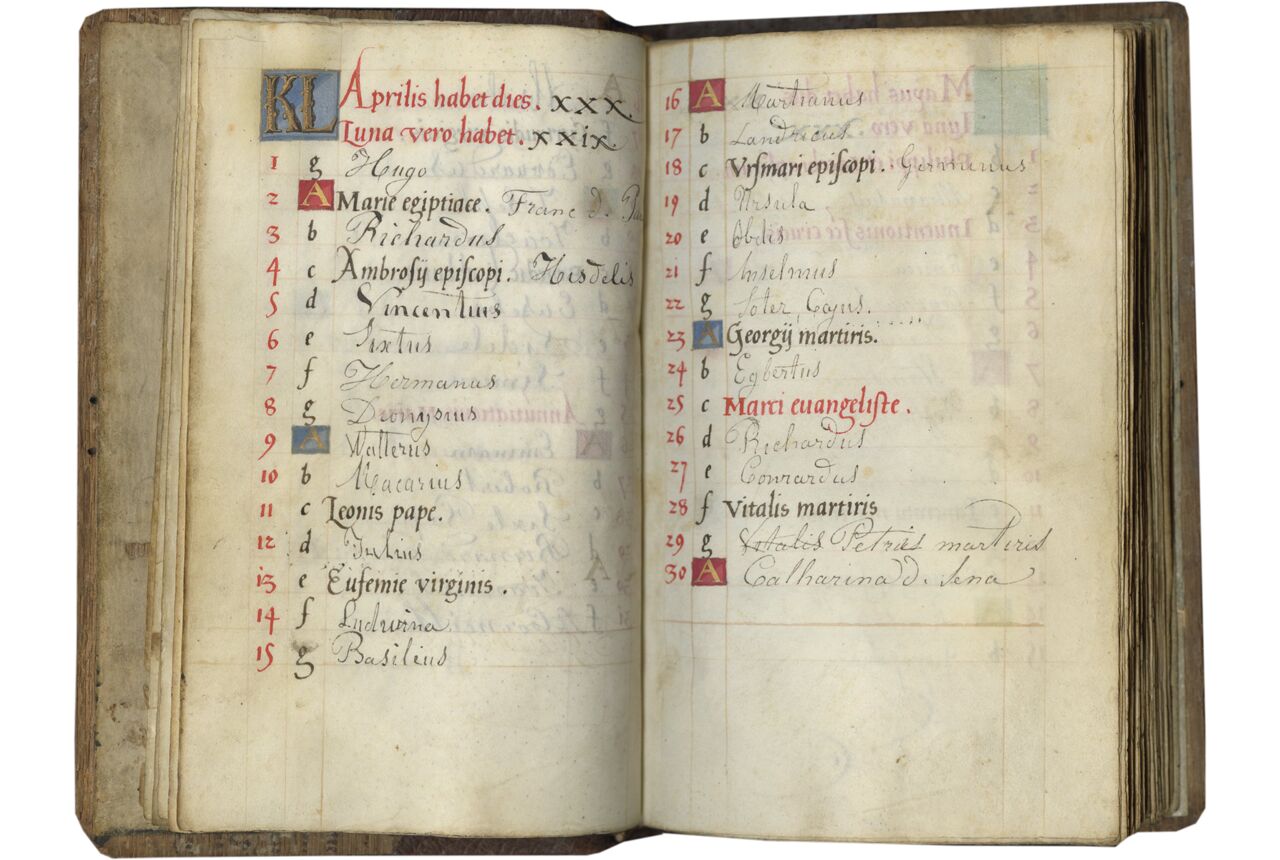 KL Aprilis habet dies. xxx.
Luna vero habet. xxix.
1 g Hugo
2 A Marie egiptiace. Franc d. Pau
3 b Richardus
4 c Ambrosij episcopi.
5 d Vincentius
6 e Sixtus
7 f Hermanus
8 g Dionysius
9 A Walterus
10 b Macarius
11 c Leonis pape.
12 d Julius
13 e Eufemie virginis.
14 f Ludwina
15 g Basilius
16 A Martianus
17 b Landricus
18 c Vrsmari episcopi. Germanus
19 d Ursula
20 e
21 f Anselmus
22 g Soter, Cajus.
23 A Georgij martiris.
24 b Egbertus
25 c Marci euangeliste.
26 d Richardus
27 e Conrardus
28 f Vitalis martiris
29 g Vitalis Petrus martiris
30 A Catharina d. Sena